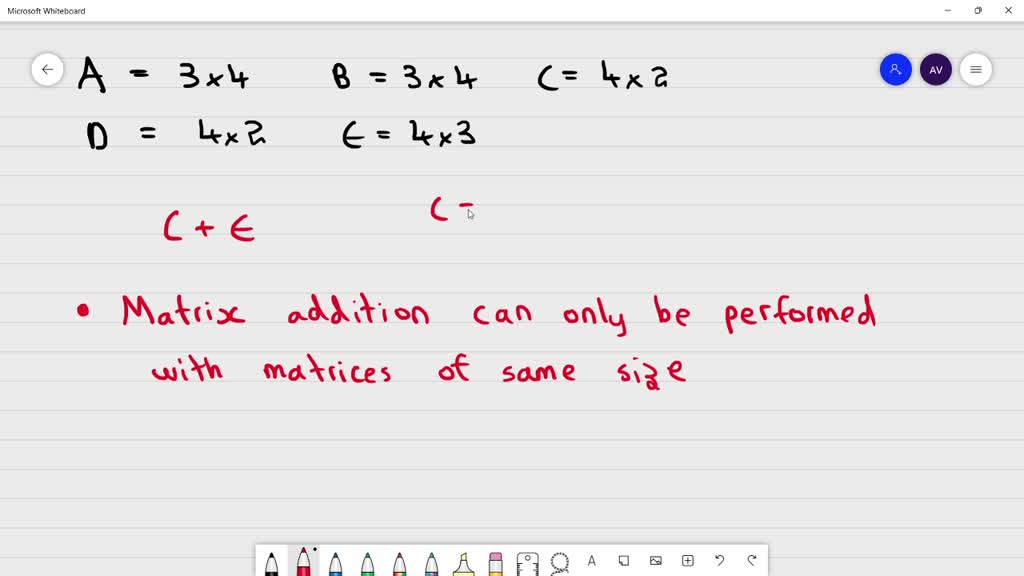 Microsoft Whiteboard
A = 3x4 B = 3x4 C = 4x2
AV
D = 4x2 E = 4x3
C + E
C =
• Matrix addition can only be performed
with matrices of same size
A